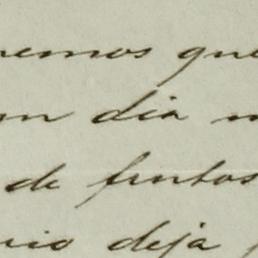 remos que
un dia m
de frutos
rio deja